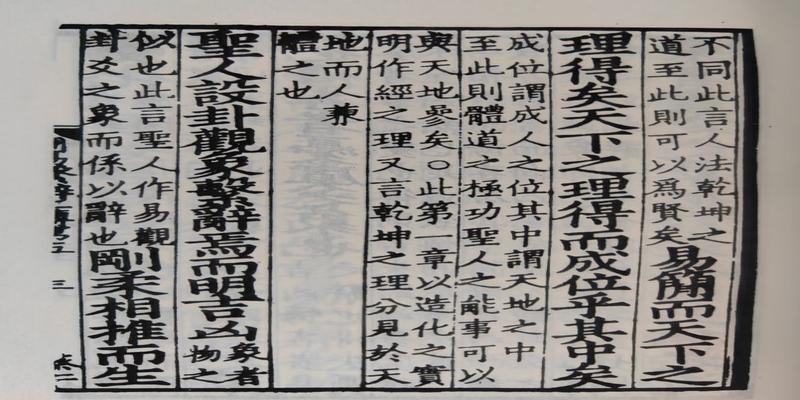 不同此言人法乾坤之
道至此則可以爲賢矣
易簡而天下之
理得矣天下之理得而成位乎其中矣
成位謂成人之位其中謂天地之中
至此則體道之極功聖人之能事可以
與天地參矣○此第一章以造化之實
明作經之理又言乾坤之理分見於天
地而人兼
體之也
聖人設卦觀象繫辭焉而明吉凶
象者
物之
似也此言聖人作易觀
卦爻之象而係以辭也
剛柔相推而生
三